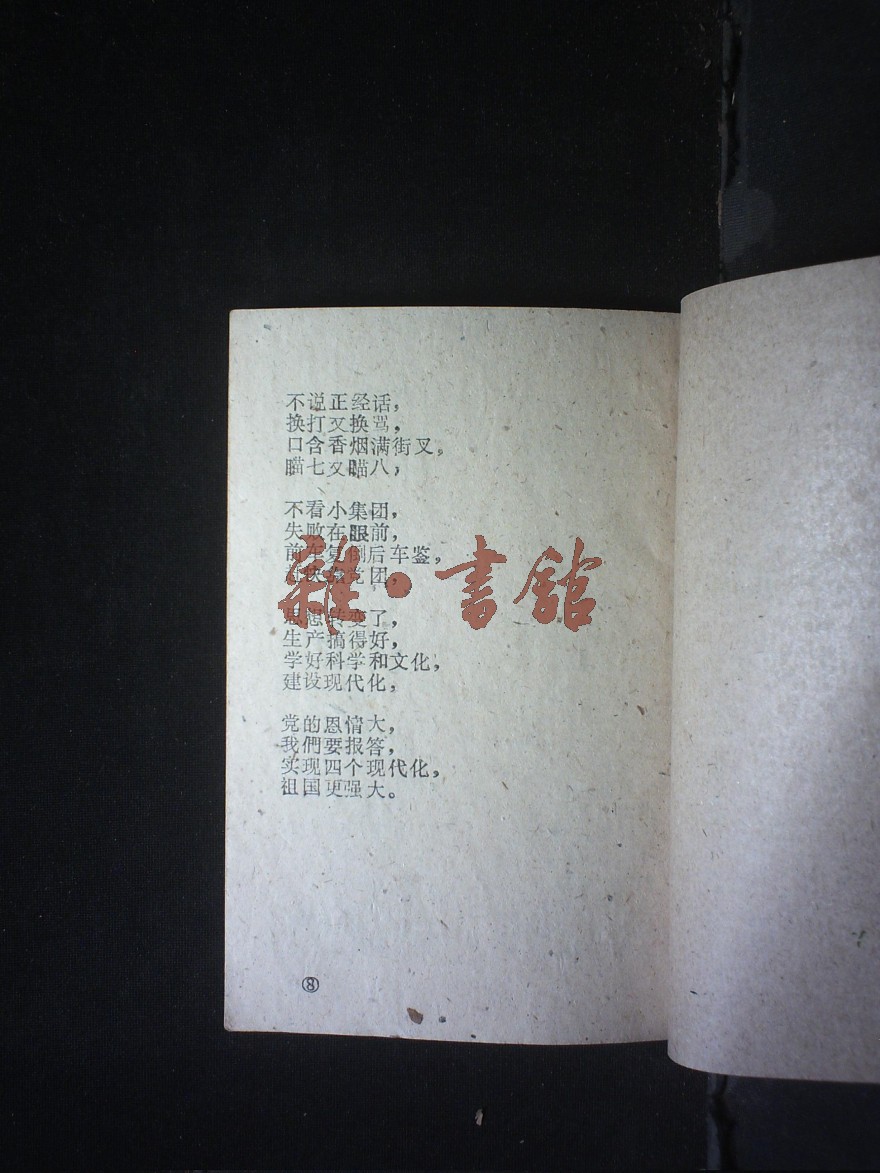 不说正经话,
换打又换骂,
口含香烟满街叉,
瞄七又瞄八,
不看小集团,
失败在眼前,
前车复倒后车鉴,
党团,
思想转变了,
生产搞得好,
学好科学和文化,
建设现代化,
党的恩情大,
我們要报答,
实现四个现代化,
祖国更强大。
⑧
雜·書館